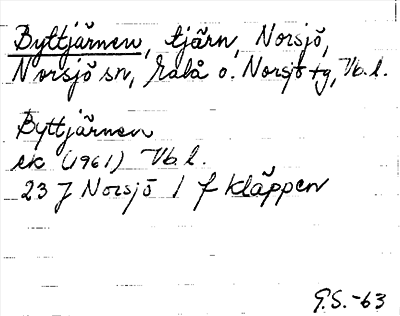 Byttjärnen, tjärn, Norsjö,
Norsjö sn, Malå o. Norsjö tg, Vb. l.
Byttjärnen
ek (1961) Vb. l.
23 J Norsjö 1 f Kläppen
G.S. -63